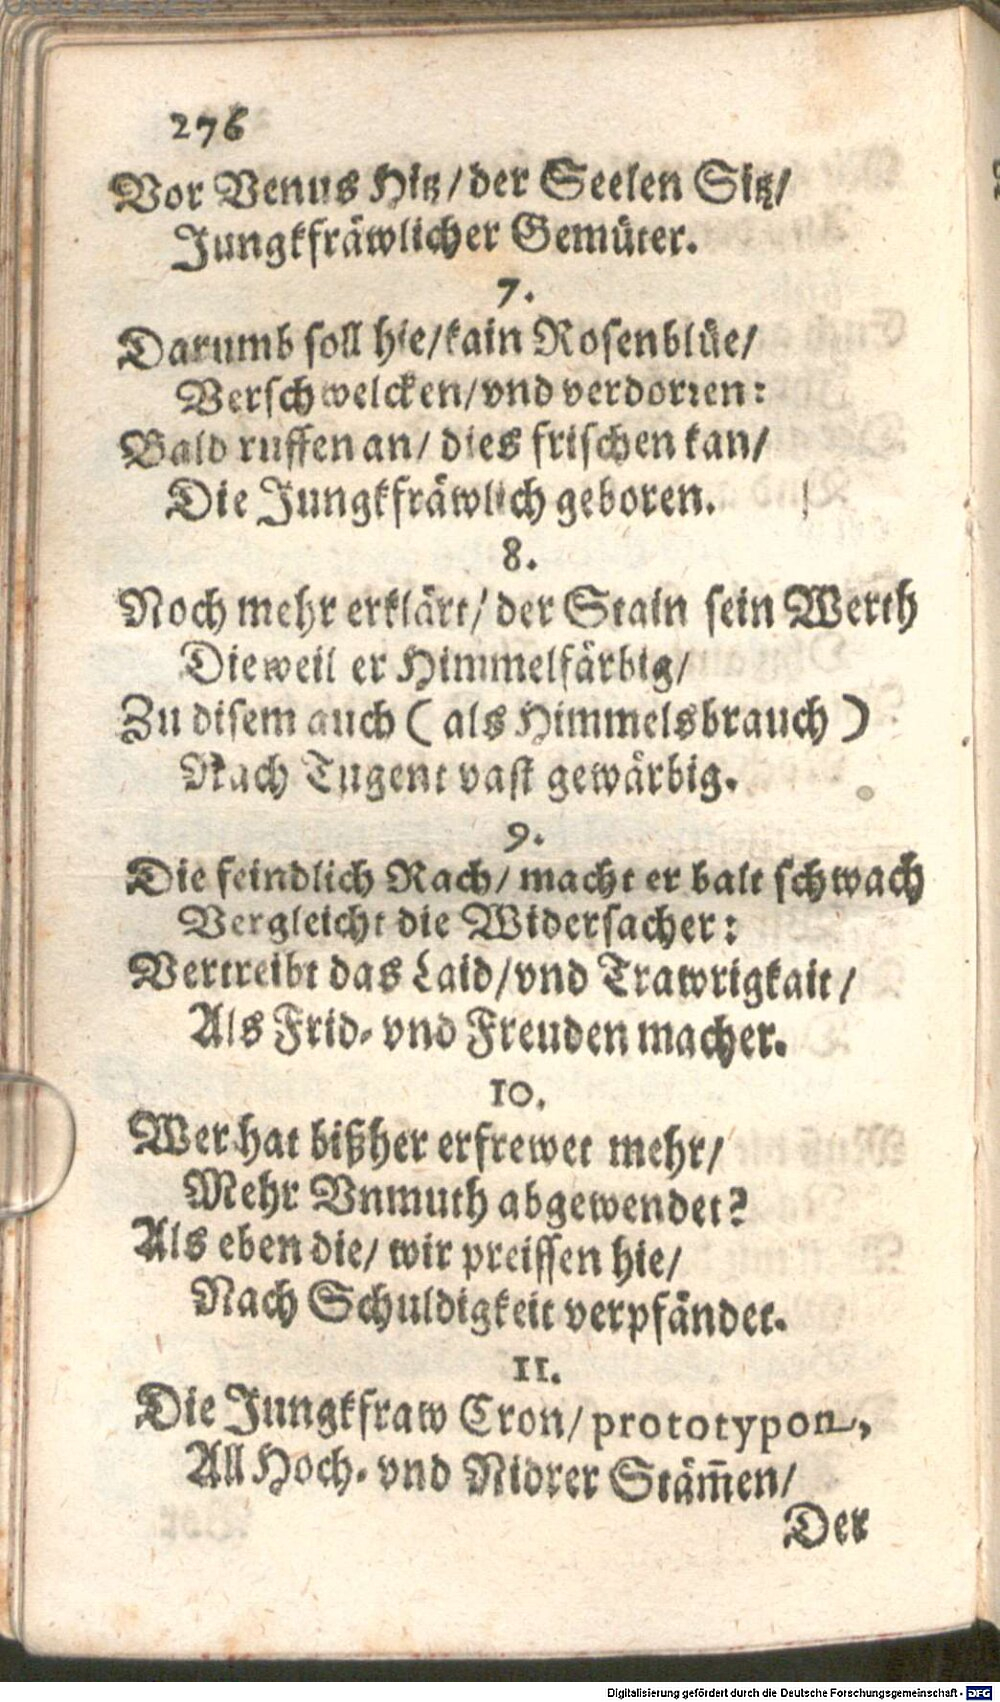 276
Vor Venus Hitz/der Seelen Sitz/
Jungkfräwlicher Gemüter.
7.
Darumb soll hie/kain Rosenblüe/
Verschwelcken/vnd verdorren:
Bald ruffen an/ dies frischen kan/
Die Jungkfräwlich geboren.
8.
Noch mehr erklärt/ der Stain sein Werth
Dieweil er Himmelfärbig/
Zu disem auch ( als Himmelsbrauch )
Nach Tugent vast gewärbig.
9.
Die feindlich Rach/ macht er balt schwach
Vergleicht die Widersacher:
Vertreibt das Laid/vnd Trawrigkait/
Als Frid- vnd Freuden macher.
10.
Wer hat bißher erfrewet mehr/
Mehr Vnmuth abgewendet?
Als eben die/ wir preissen hie/
Nach Schuldigkeit verpfändet.
11.
Die Jungkfraw Cron/ prototypon,
All Hoch- vnd Nidrer Stäm̄en/
Der
Digitalisierung gefördert durch die Deutsche Forschungsgemeinschaft - DFG